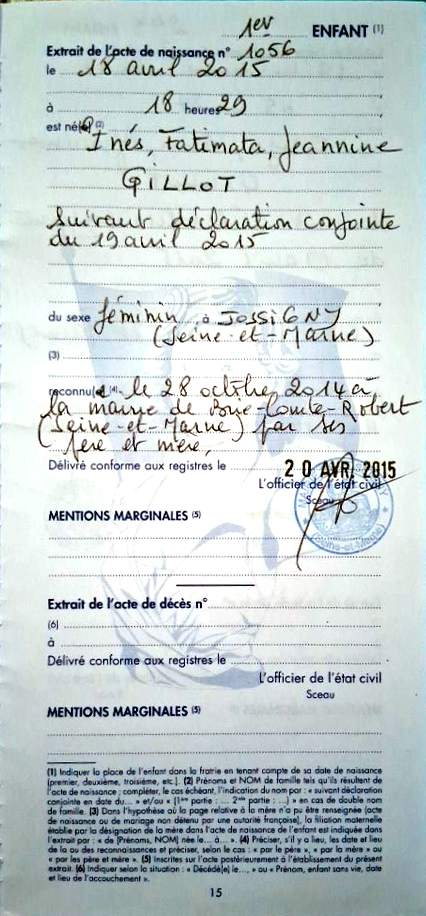 1er ENFANT (1)
Extrait de l'acte de naissance n° 1056
le 18 avril 2015
à 18 heures 29
est né(e) (2)
Inés, Fatimata, Jeannine
GILLOT
suivant déclaration conjointe
du 19 avril 2015
du sexe féminin, à JOSSIGNY
(Seine-et-Marne)
(3)
reconnu(e) (4) le 28 octobre 2014 à
la mairie de Brie-Comte-Robert
(Seine-et-Marne) par ses
père et mère,
Délivré conforme aux registres le 20 AVR. 2015
L'officier de l'état civil
Sceau
MENTIONS MARGINALES (5)
Extrait de l'acte de décès n°
(6)
à
Délivré conforme aux registres le
L'officier de l'état civil
Sceau
MENTIONS MARGINALES (5)
(1) Indiquer la place de l'enfant dans la fratrie en tenant compte de sa date de naissance
(premier, deuxième, troisième, etc.). (2) Prénoms et NOM de famille tels qu'ils résultent de
l'acte de naissance ; compléter, le cas échéant, l'indication du nom par : « suivant déclaration
conjointe en date du... » et/ou « (1ère partie : ... 2nde partie : ...) » en cas de double nom
de famille. (3) Dans l'hypothèse où la page relative à la mère n'a pu être renseignée (acte
de naissance ou de mariage non détenu par une autorité française), la filiation maternelle
établie par la désignation de la mère dans l'acte de naissance de l'enfant est indiquée dans
l'extrait par : « de [Prénoms, NOM] née le... à... ». (4) Préciser, s'il y a lieu, les date et lieu
de la ou des reconnaissances et préciser, selon le cas : « par le père », « par la mère » ou
« par les père et mère ». (5) Inscrites sur l'acte postérieurement à l'établissement du présent
extrait. (6) Indiquer selon la situation : « Décédé(e) le..., » ou « Prénom, enfant sans vie, date
et lieu de l'accouchement ».
15